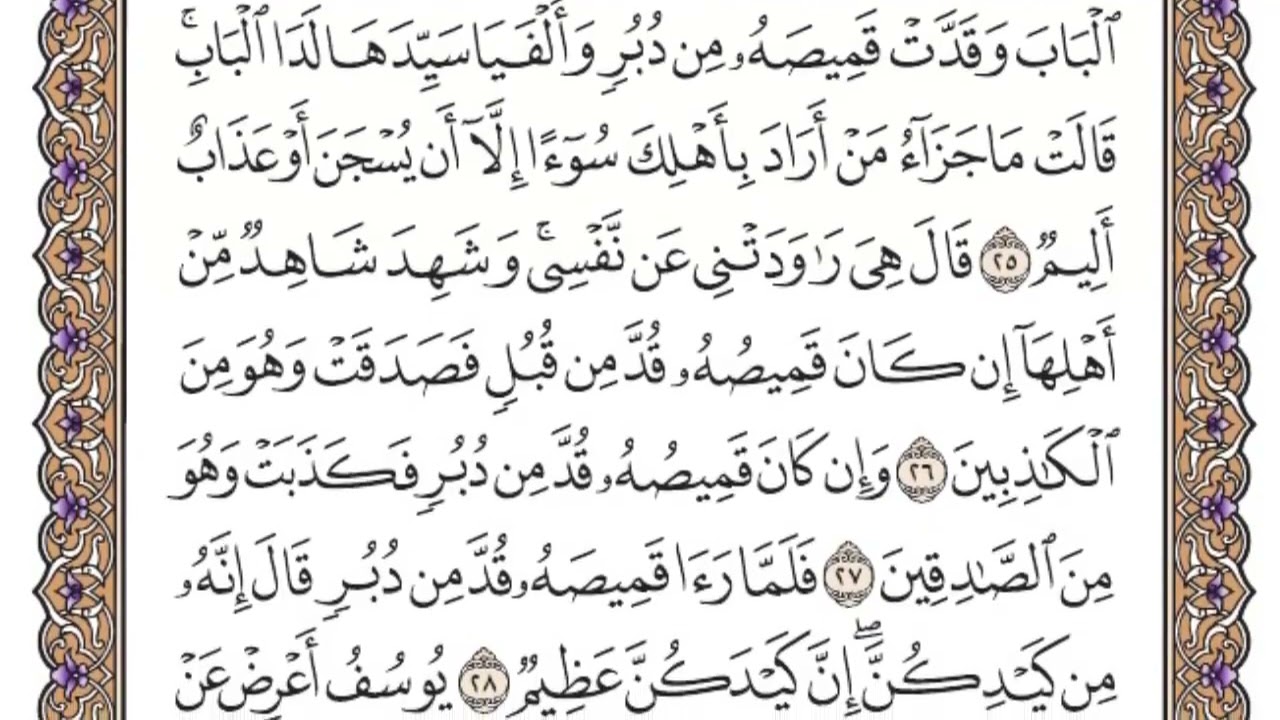 ٱلۡبَابَ وَقَدَّتۡ قَمِيصَهُۥ مِن دُبُرٖ وَأَلۡفَيَا سَيِّدَهَا لَدَا ٱلۡبَابِۚ
قَالَتۡ مَا جَزَآءُ مَنۡ أَرَادَ بِأَهۡلِكَ سُوٓءًا إِلَّآ أَن يُسۡجَنَ أَوۡ عَذَابٌ
أَلِيمٞ ٢٥ قَالَ هِيَ رَٰوَدَتۡنِي عَن نَّفۡسِيۚ وَشَهِدَ شَاهِدٞ مِّنۡ
أَهۡلِهَآ إِن كَانَ قَمِيصُهُۥ قُدَّ مِن قُبُلٖ فَصَدَقَتۡ وَهُوَ مِنَ
ٱلۡكَٰذِبِينَ ٢٦ وَإِن كَانَ قَمِيصُهُۥ قُدَّ مِن دُبُرٖ فَكَذَبَتۡ وَهُوَ
مِنَ ٱلصَّٰدِقِينَ ٢٧ فَلَمَّا رَءَا قَمِيصَهُۥ قُدَّ مِن دُبُرٖ قَالَ إِنَّهُۥ
مِن كَيۡدِكُنَّۖ إِنَّ كَيۡدَكُنَّ عَظِيمٞ ٢٨ يُوسُفُ أَعۡرِضۡ عَنۡ